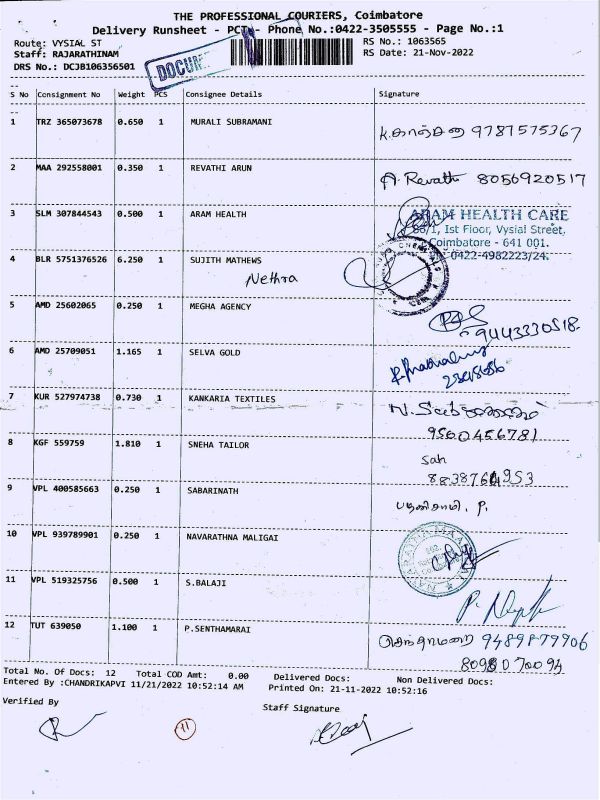 THE PROFESSIONAL COURIERS, Coimbatore
Delivery Runsheet - PCT - Phone No.:0422-3505555 - Page No.:1
Route: VYSIAL ST
RS No.: 1063565
Staff: RAJARATHINAM
RS Date: 21-Nov-2022
DRS No.: DCJB106356501
DOCUM
S No Consignment No Weight PCS Consignee Details Signature
1 TRZ 365073678 0.650 1 MURALI SUBRAMANI
K. காஞ்சனா 9787575367
2 MAA 292558001 0.350 1 REVATHI ARUN
A. Revathi 8056920517
3 SLM 307844543 0.500 1 ARAM HEALTH
ARAM HEALTH CARE
1st Floor, Vysial Street,
Coimbatore - 641 001.
0422-4982223/24.
4 BLR 5751376526 6.250 1 SUJITH MATHEWS
Nethra
5 AMD 25602065 0.250 1 MEGHA AGENCY
9443330518.
6 AMD 25709051 1.165 1 SELVA GOLD
7 KUR 527974738 0.730 1 KANKARIA TEXTILES
9500456781
8 KGF 559759 1.810 1 SNEHA TAILOR
Sah
9 VPL 400585663 0.250 1 SABARINATH
பழனிசாமி. P.
10 VPL 939789901 0.250 1 NAVARATHNA MALIGAI
11 VPL 519325756 0.500 1 S.BALAJI
12 TUT 639050 1.100 1 P.SENTHAMARAI
செந்தாமரை 9489879906
Total No. Of Docs: 12 Total COD Amt: 0.00 Delivered Docs: Non Delivered Docs:
Entered By :CHANDRIKAPVI 11/21/2022 10:52:14 AM Printed On: 21-11-2022 10:52:16
Verified By
Staff Signature
11